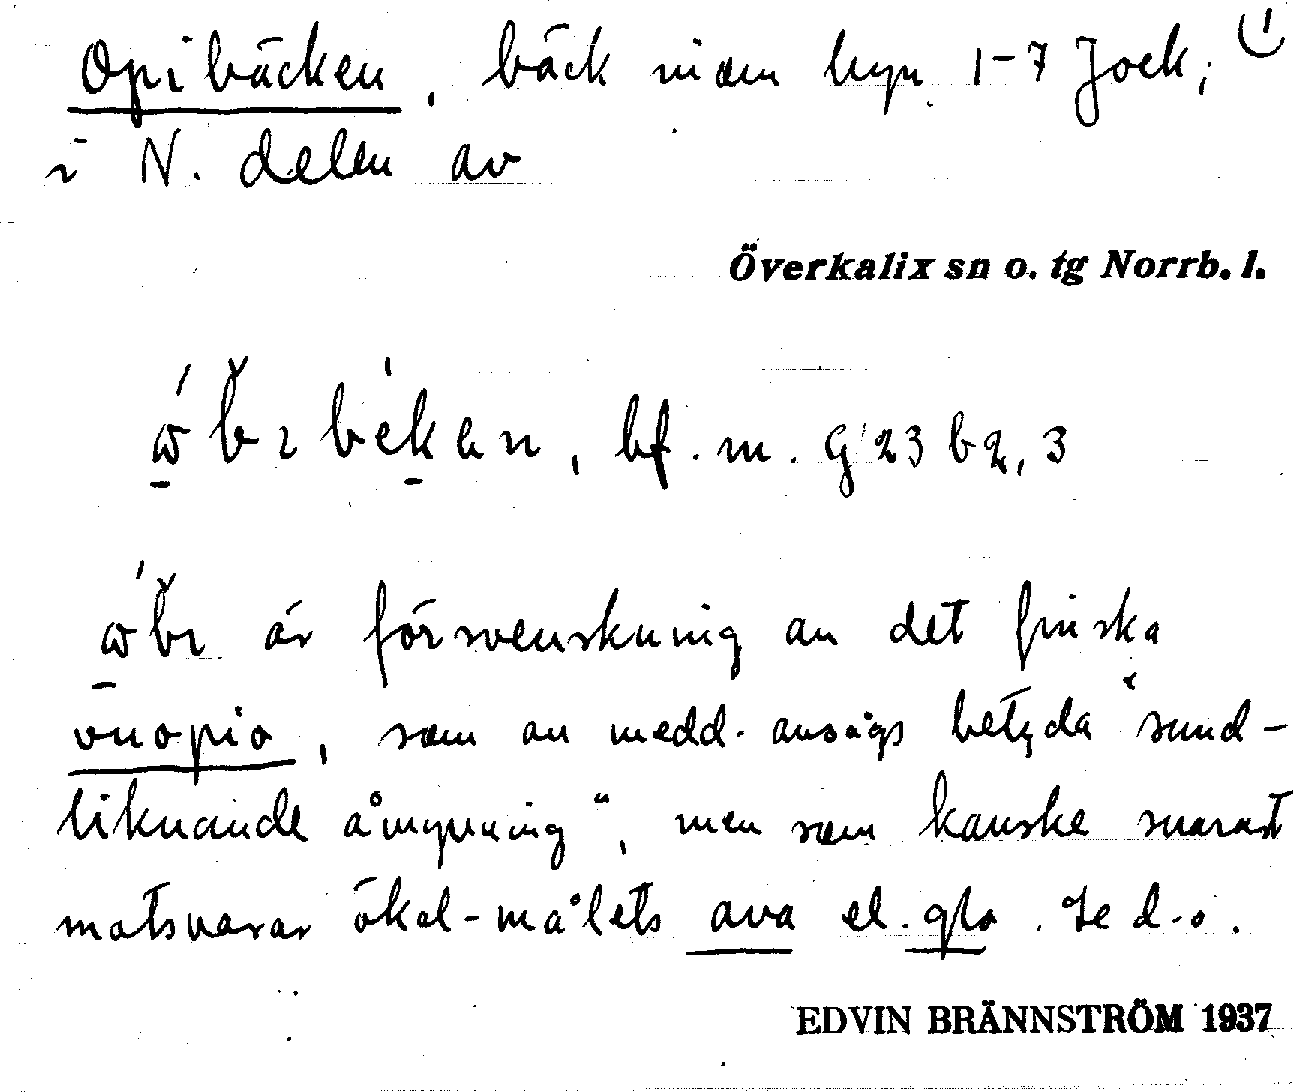 Opibäcken, bäck inom hyn 1-7 Jock, 1)
i N. delen av
Överkalix sn o. tg Norrb. l.
bf. m. G 23 b 2, 3
är försvenskning av det finska
vuopio, som av medd. ansågs betyda "sund-
liknande åmynning", men som kanske snarast
motsvarar ökal-målets ava el. Se d. o.
EDVIN BRÄNNSTRÖM 1937